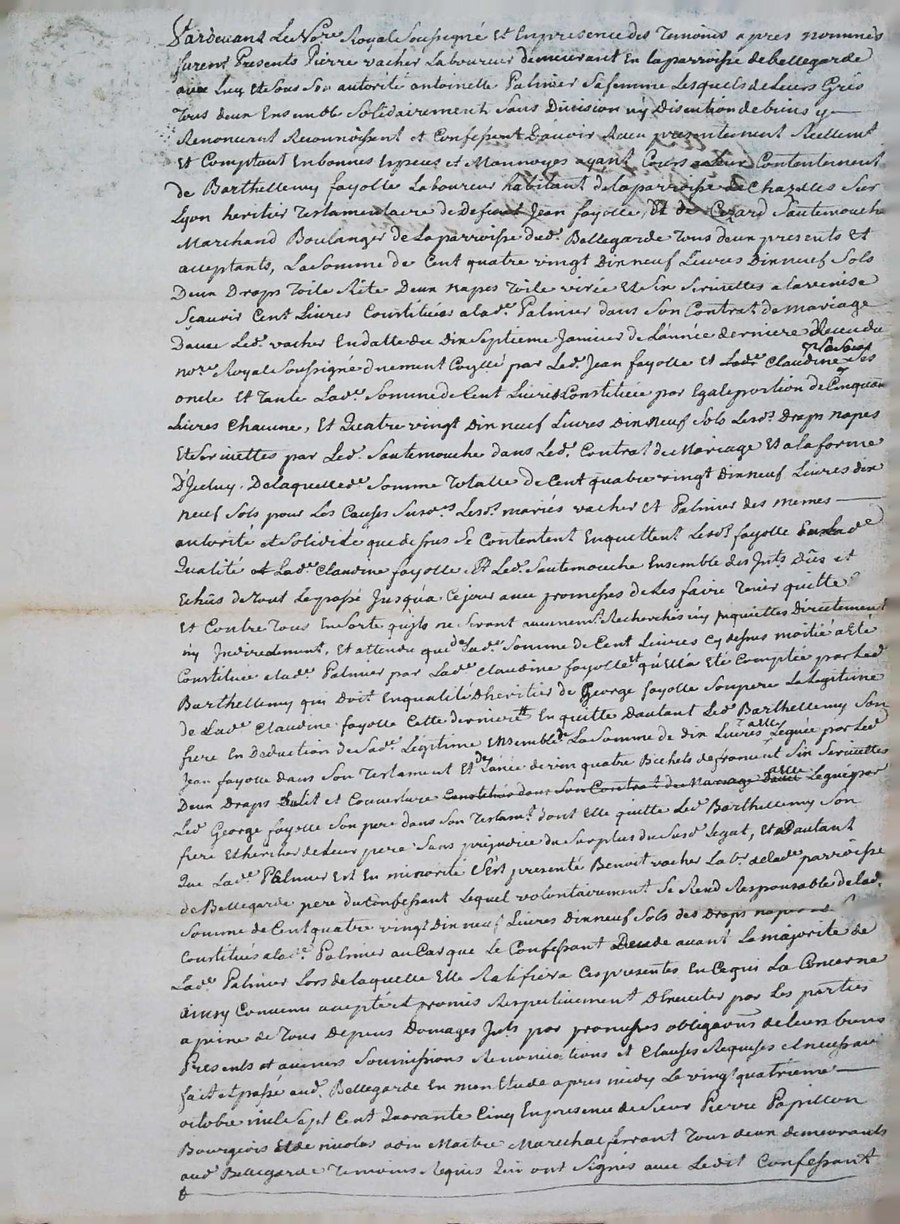 Pardevant Le Nore Royal Soussigné Et En presence des Temoins apres nommés
furent Presents Pierre vacher Laboureur demeurant En la parroisse de bellegarde
avec Luy Et Sous Son autorité antoinette Palmier Sa femme Lesquels de Leurs Grés
Tous deux Ensemble Solidairement Sans Division ny Discution de biens y
Renoncant Reconnoissent et Confessent Davoir Receu presentement Reellemt
Et Comptant En bonnes Especes et Monnoyes ayant Cours a Leur Contentement
de Barthellemy fayolle Laboureur habitant de la parroisse de Chazelles Sur
Lyon heritier Testamentaire de Defunt Jean fayolle, Et de Cezard Sautemouche
Marchand Boulanger de La parroisse dud. Bellegarde Tous deux presents Et
acceptants, La Somme de Cent quatre vingt Dix neuf Livres Dix neuf Sols
Deux Draps Toile Rite Deux napes Toile virée Et Six Serviettes a la venise
Sçavoir Cent Livres Constituées a lade. Palmier dans Son Contrat de mariage
Davec Led. vacher En datte du Dix Septieme Janvier de L'année derniere Receu du
nore Royal Soussigné duement Coyllé par Led. Jean fayolle et Lade. Claudine fayolle Ses
oncle Et Tante Lade. Somme de Cent Livres Constituée par Egale portion de Cinquante
Livres Chacune, Et Quatre vingt Dix neuf Livres Dix neuf Sols Lesd. Draps napes
Et Serviettes par Led. Sautemouche dans Led. Contrat de Mariage Et a la forme
D'Jceluy. De laquelle de. Somme Totalle de Cent quatre vingt Dix neuf Livres dix
neuf Sols pour Les Causes Susds. Lesd. mariés vacher et Palmier des memes
autorité et Solidité que dessus Se Contentent En quittent Lesd. fayolle En Lade.
Qualité et Lade. Claudine fayolle. Et Led. Sautemouche Ensemble des Jnts. dûs et
Echûs de Tout Le passé Jusqua ce jour avec promesses de Les faire Tenir quitte
Et Contre Tous En Sorte qu'jls ne Seront aucunemt. Recherchés ny jnquiettés Directement
ny Jndirectment, Et attendu que de Lade. Somme de Cent Livres Cy dessus moitié a Eté
Constituée a lade. Palmier par Lade. Claudine fayolle et qu'Ella Eté Comptée par Led.
Barthellemy qui doit En qualité D'heritier de George fayolle Son pere La Legitime
de Lade. Claudine fayolle Cette derniere En quitte Dautant Led. Barthellemy Son
frere En Deduction de Sade. Légitime Ensemble de La Somme de dix Livres a elle Leguée par Led.
Jean fayolle dans Son Testament Et de quatre Bichets de froment Six Serviettes
Deux Draps De Lit et Couverture Constitués dans Son Contrat de Mariage a elle Legués par
Led. George fayolle Son pere dans Son Testamt. dont Elle quitte Led. Barthellemy Son
frere Et heritier de Leur pere Sans prejudice du Surplus du Susd. Legat, Et Dautant
Que Lade. Palmier Est En minorité S'est presenté Benoit vacher Labr. de lade. parroisse
de Bellegarde pere du Confessant Lequel volontairement Se Rend Responsable de lad.
Somme de Cent quatre vingt Dix neuf Livres Dix neuf Sols des Draps napes
Constitués a lade. Palmier au Cas que Le Confessant Decede avant La majorité de
Lade. Palmier Lors de laquelle Elle Ratifiera Ces presentes En Ce qui La Concerne
ainsy Convenu accepté et promis Respectivement D'Executer par Les parties
a peine de Tous Depens Domages Jnts. par promesses obligaons. de Leurs biens
Presents et avenir Soumissions Renonciations et Clauses Requises et necessaires
fait et passé aud. Bellegarde En mon Etude apres midy Le vingt quatrieme
octobre mil Sept Cent Quarante Cinq En presence de Sieur Pierre Papillon
Bourgeois Et de nicolas Maitre Marechal ferrant Tous deux demeurants
aud. Bellegarde Temoins Requis Qui ont Signés avec Ledit Confessant